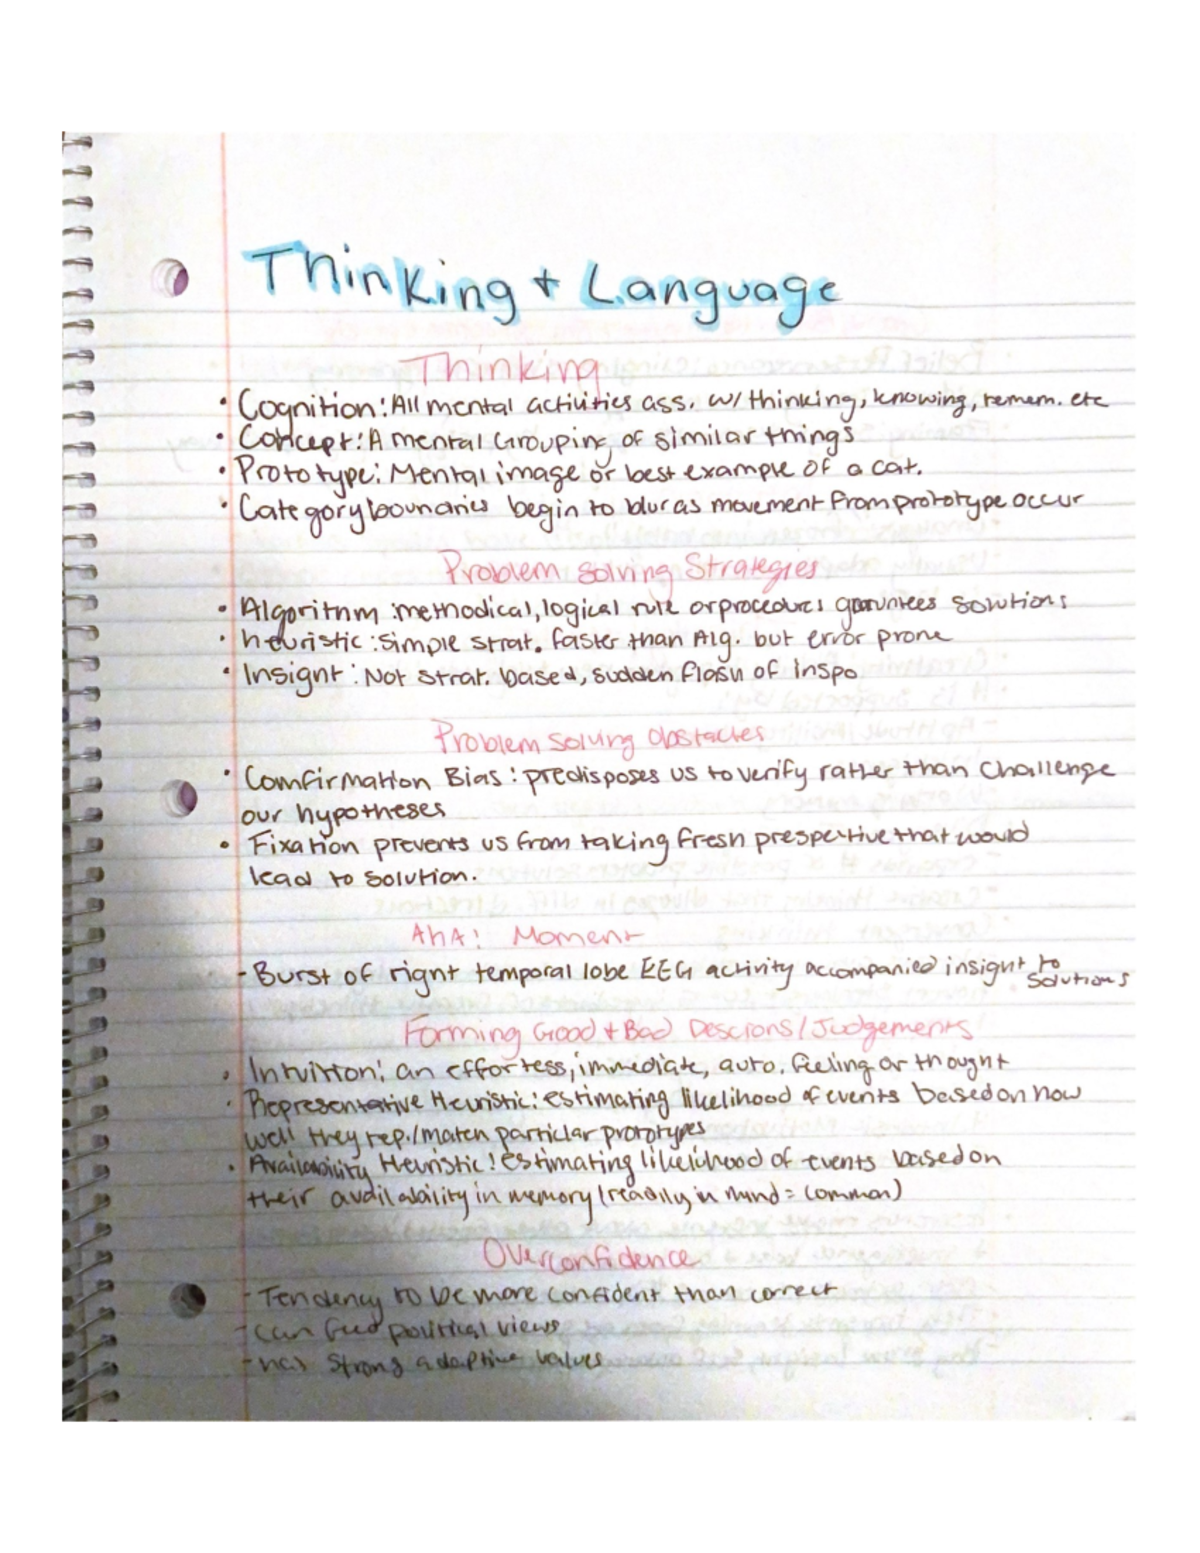 Thinking + Language
Thinking
• Cognition: All mental activities ass. w/ thinking, knowing, remem. etc
• Concept: A mental Grouping of similar things
• Prototype: Mental image or best example of a cat.
• Category bounaries begin to blur as movement from prototype occur
Problem Solving Strategies
• Algorithm: methodical, logical rule or procedures garuntees solutions
• heuristic: Simple strat. faster than Alg. but error prone
• Insight: Not strat. based, sudden flash of inspo
Problem solving obstacles
• Comfirmation Bias: predisposes us to verify rather than challenge
our hypotheses
• Fixation prevents us from taking fresh prespective that would
lead to solution.
AhA! Moment
- Burst of right temporal lobe EEG activity accompanied insight to
solutions
Forming Good + Bad Descions/Judgements
• Intuition: an effortess, immediate, auto. feeling or thought
• Representative Heuristic: estimating likelihood of events based on how
well they rep./match particlar prototypes
• Availability Heuristic: estimating likelihood of events based on
their availability in memory (readily in mind = common)
Overconfidence
- Tendency to be more confident than correct
- can feed political views
- has strong adaptive values